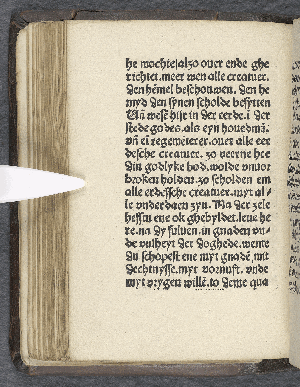 he mochte also ouer ende ghe
richtet. meer wen alle creatuer.
den hēmel beschouwen. den he
myd den synen scholde besytten
Uñ wese hijr in der eerde. ī der
stede godes. als eyn houedmā.
uñ eī regeweterer. ouer alle eer
desche creatuer. so veerne hee
din godlyke bod. wolde vnuor
broken holden. so scholden em
alle erdessche creatuer. myt al
le vnderdaen zyn. Na der zele
heffstu ene ok ghebyldet. leue he
re. na dy suluen. in gnaden vn
de vulheyt der doghede. wente
du schopest ene myt gnadē. mit
dechtnysse. myt vornuft. vnde
myt vrygen willē. to deme qua